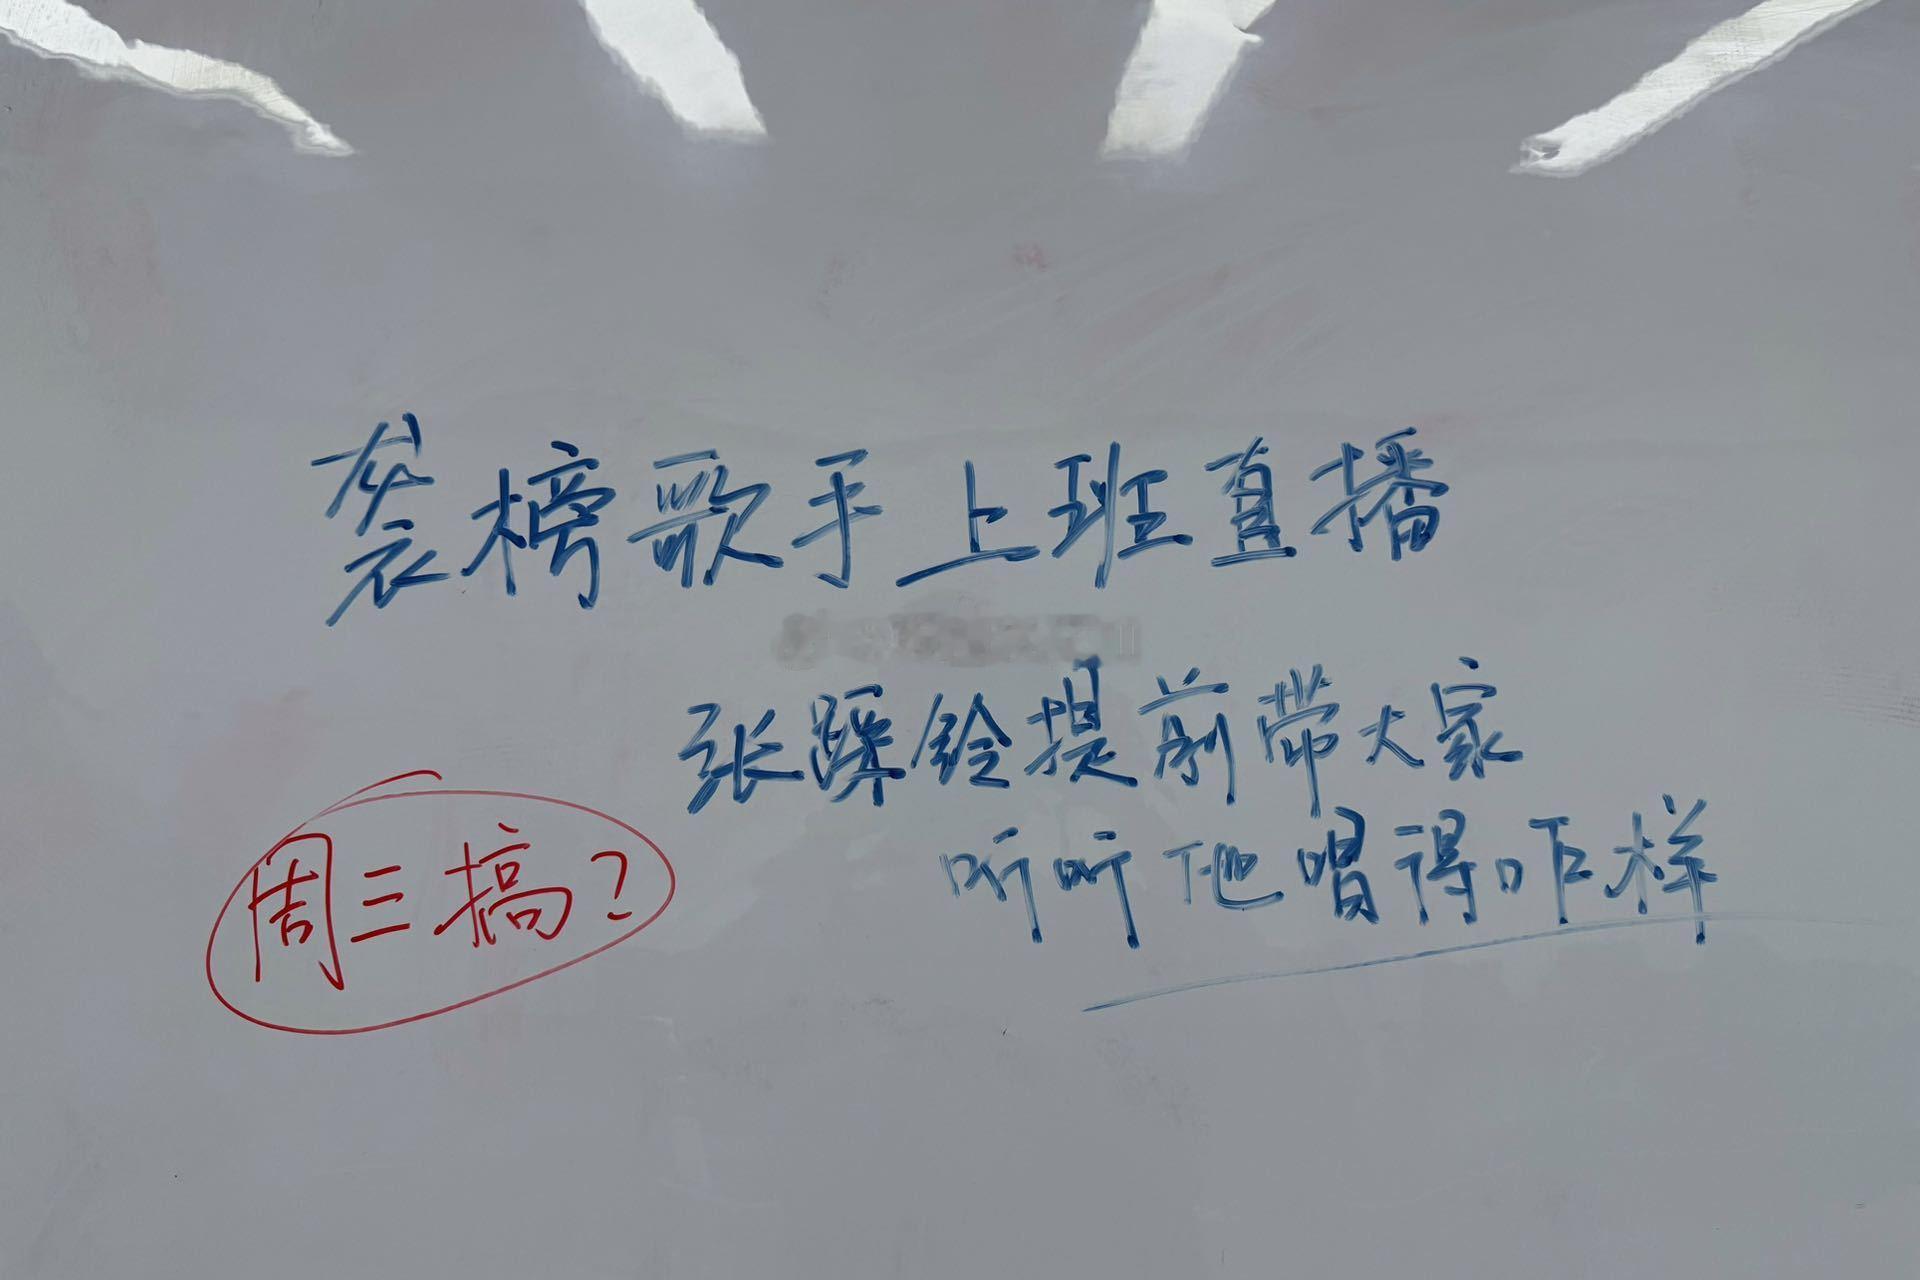 袭榜歌手上班直播
张踩铃提前带大家
听听他唱得咋样
周三搞？